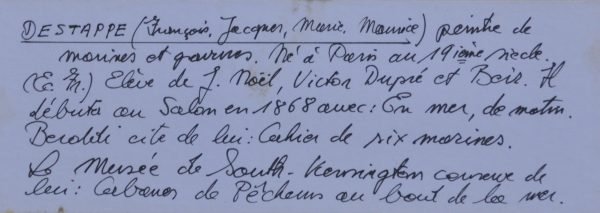 DESTAPPE (François, Jacques, Marie, Maurice) peintre de
marines et graveur. Né à Paris au 19ième siècle.
(Ec. Fr.) Elève de J. Noël, Victor Dupré et Boiz. Il
débuta au Salon en 1868 avec: En mer, de matin.
Beraldi cite de lui: Cahier de six marines.
Le Musée de South-Kensington conserve de
lui: Cabanes de Pêcheurs au bout de la mer.